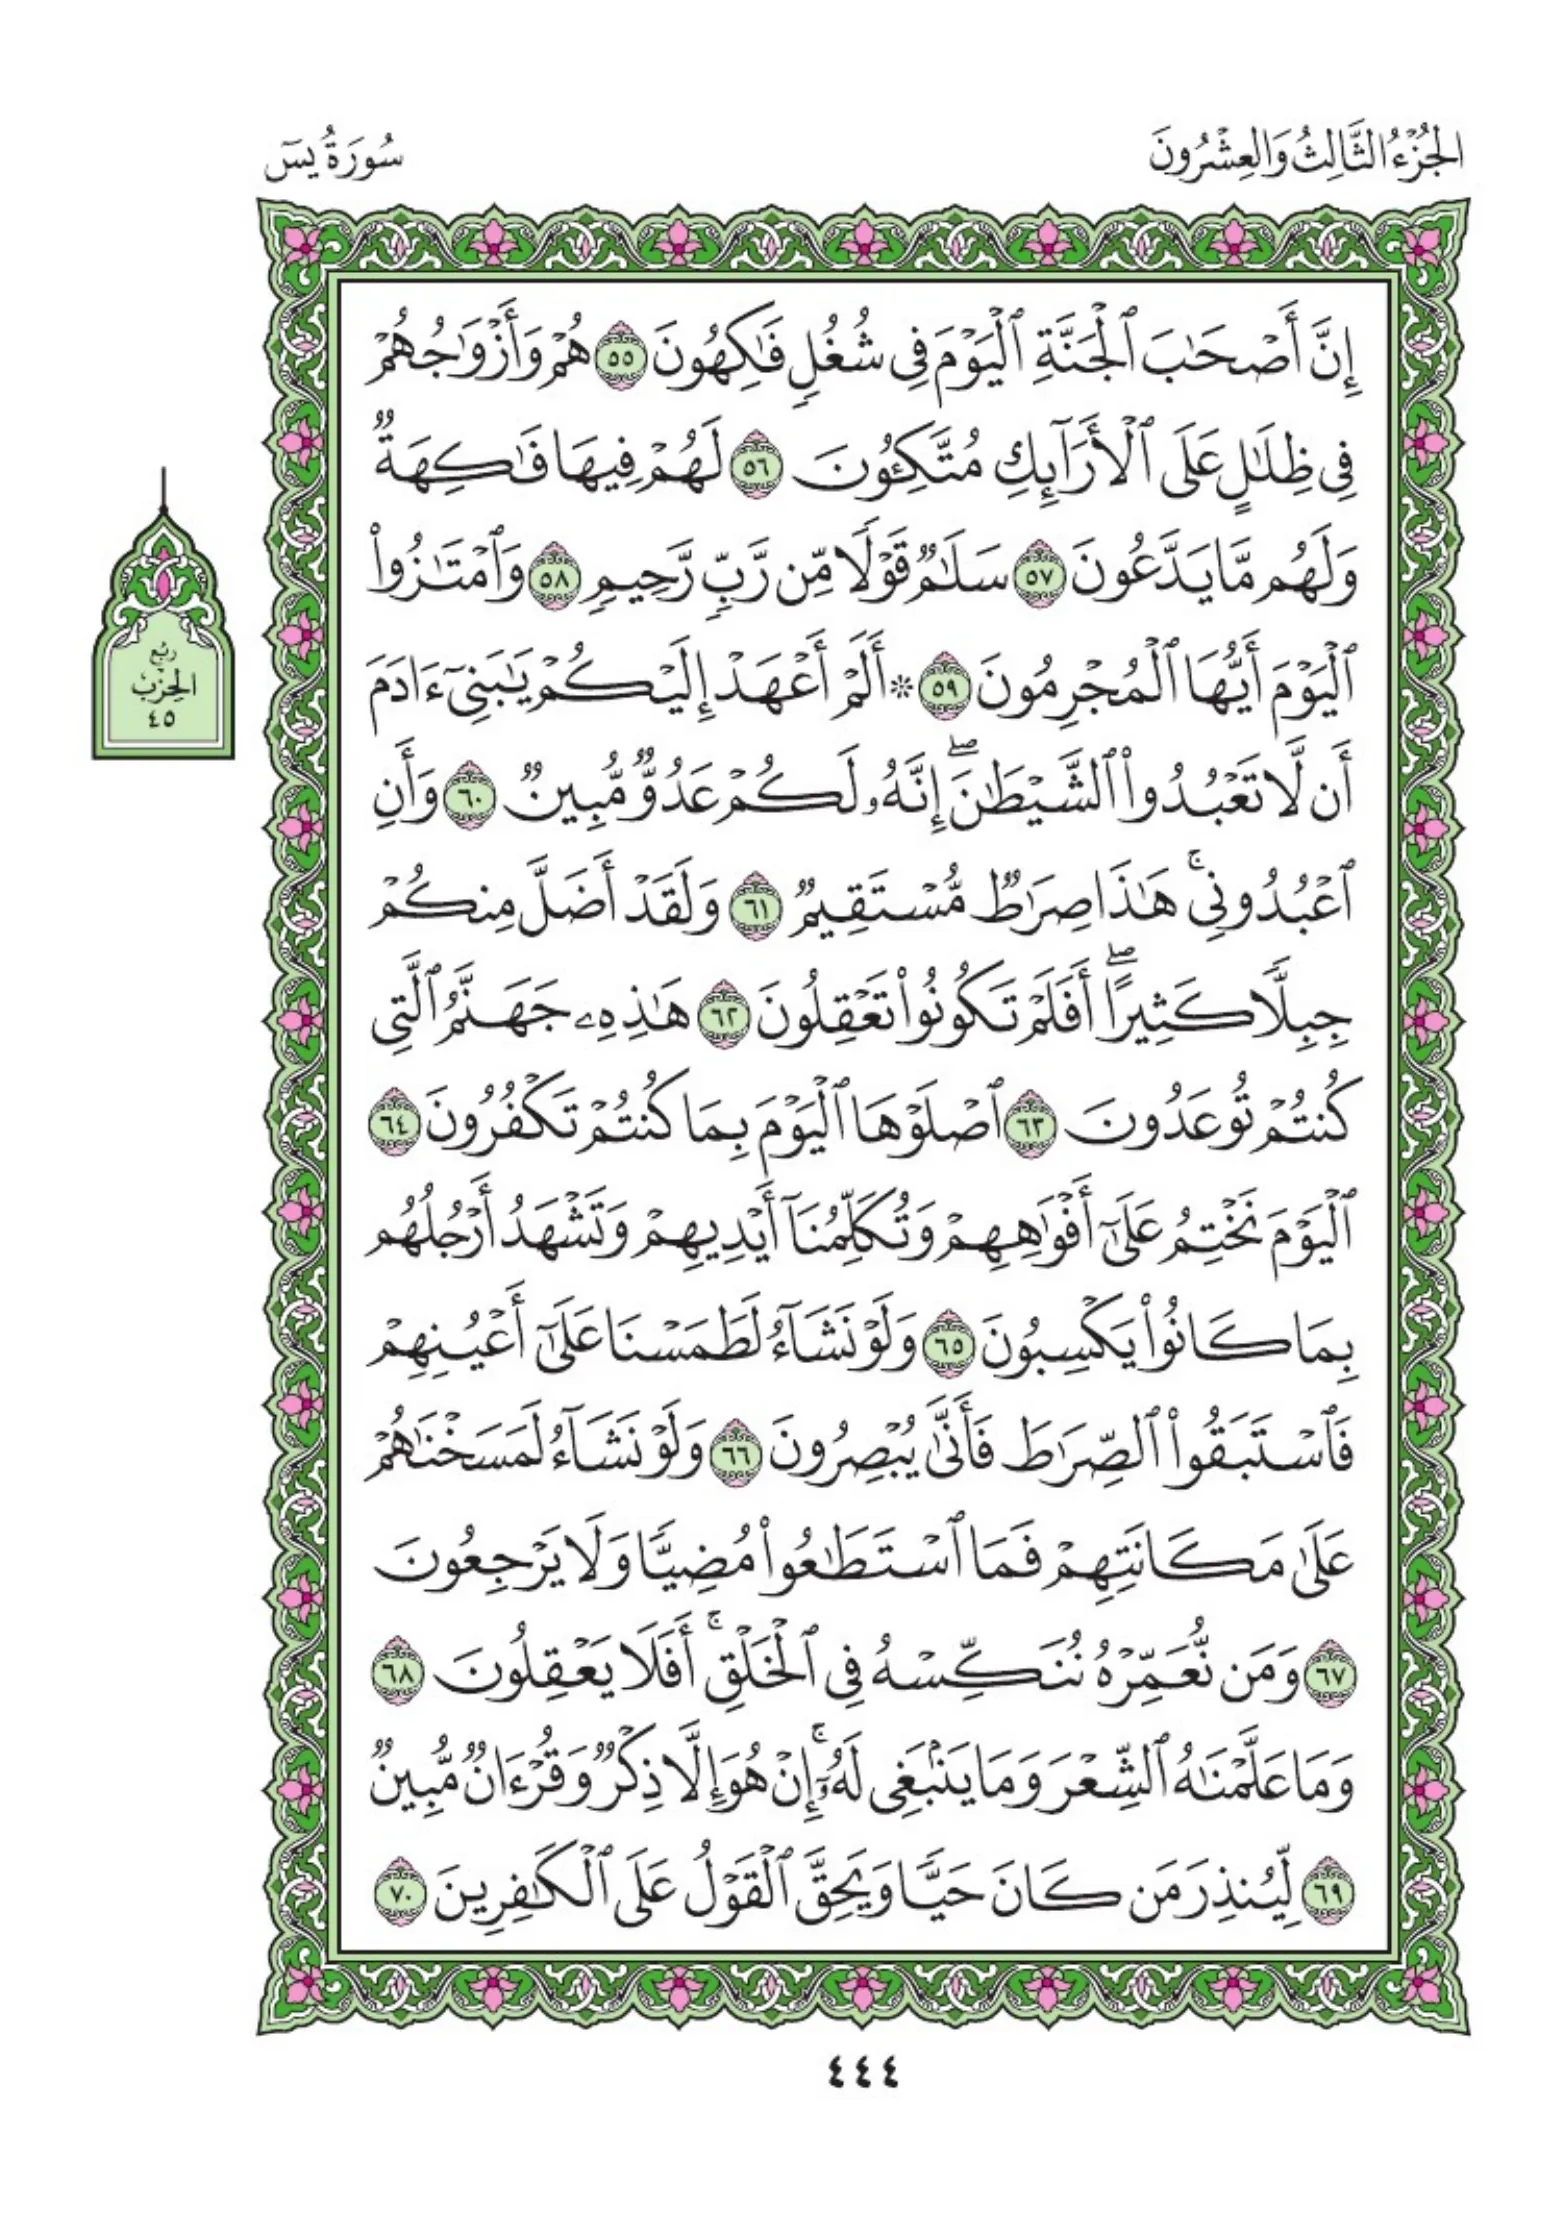 الجُزْءُ الثَّالِثُ وَالعِشْرُونَ
سُورَةُ يسٓ
إِنَّ أَصْحَٰبَ ٱلْجَنَّةِ ٱلْيَوْمَ فِى شُغُلٍ فَٰكِهُونَ ٥٥ هُمْ وَأَزْوَٰجُهُمْ
فِى ظِلَٰلٍ عَلَى ٱلْأَرَآئِكِ مُتَّكِـُٔونَ ٥٦ لَهُمْ فِيهَا فَٰكِهَةٌ
وَلَهُم مَّا يَدَّعُونَ ٥٧ سَلَٰمٌ قَوْلًا مِّن رَّبٍّ رَّحِيمٍ ٥٨ وَٱمْتَٰزُوا۟
ٱلْيَوْمَ أَيُّهَا ٱلْمُجْرِمُونَ ٥٩ * أَلَمْ أَعْهَدْ إِلَيْكُمْ يَٰبَنِىٓ ءَادَمَ
أَن لَّا تَعْبُدُوا۟ ٱلشَّيْطَٰنَ ۖ إِنَّهُۥ لَكُمْ عَدُوٌّ مُّبِينٌ ٦٠ وَأَنِ
ٱعْبُدُونِى ۚ هَٰذَا صِرَٰطٌ مُّسْتَقِيمٌ ٦١ وَلَقَدْ أَضَلَّ مِنكُمْ
جِبِلًّا كَثِيرًا ۖ أَفَلَمْ تَكُونُوا۟ تَعْقِلُونَ ٦٢ هَٰذِهِۦ جَهَنَّمُ ٱلَّتِى
كُنتُمْ تُوعَدُونَ ٦٣ ٱصْلَوْهَا ٱلْيَوْمَ بِمَا كُنتُمْ تَكْفُرُونَ ٦٤
ٱلْيَوْمَ نَخْتِمُ عَلَىٰٓ أَفْوَٰهِهِمْ وَتُكَلِّمُنَآ أَيْدِيهِمْ وَتَشْهَدُ أَرْجُلُهُم
بِمَا كَانُوا۟ يَكْسِبُونَ ٦٥ وَلَوْ نَشَآءُ لَطَمَسْنَا عَلَىٰٓ أَعْيُنِهِمْ
فَٱسْتَبَقُوا۟ ٱلصِّرَٰطَ فَأَنَّىٰ يُبْصِرُونَ ٦٦ وَلَوْ نَشَآءُ لَمَسَخْنَٰهُمْ
عَلَىٰ مَكَانَتِهِمْ فَمَا ٱسْتَطَٰعُوا۟ مُضِيًّا وَلَا يَرْجِعُونَ
٦٧ وَمَن نُّعَمِّرْهُ نُنَكِّسْهُ فِى ٱلْخَلْقِ ۚ أَفَلَا يَعْقِلُونَ ٦٨
وَمَا عَلَّمْنَٰهُ ٱلشِّعْرَ وَمَا يَنۢبَغِى لَهُۥٓ ۚ إِنْ هُوَ إِلَّا ذِكْرٌ وَقُرْءَانٌ مُّبِينٌ
٦٩ لِّيُنذِرَ مَن كَانَ حَيًّا وَيَحِقَّ ٱلْقَوْلُ عَلَى ٱلْكَٰفِرِينَ ٧٠
ربع
الحزب
٤٥
٤٤٤